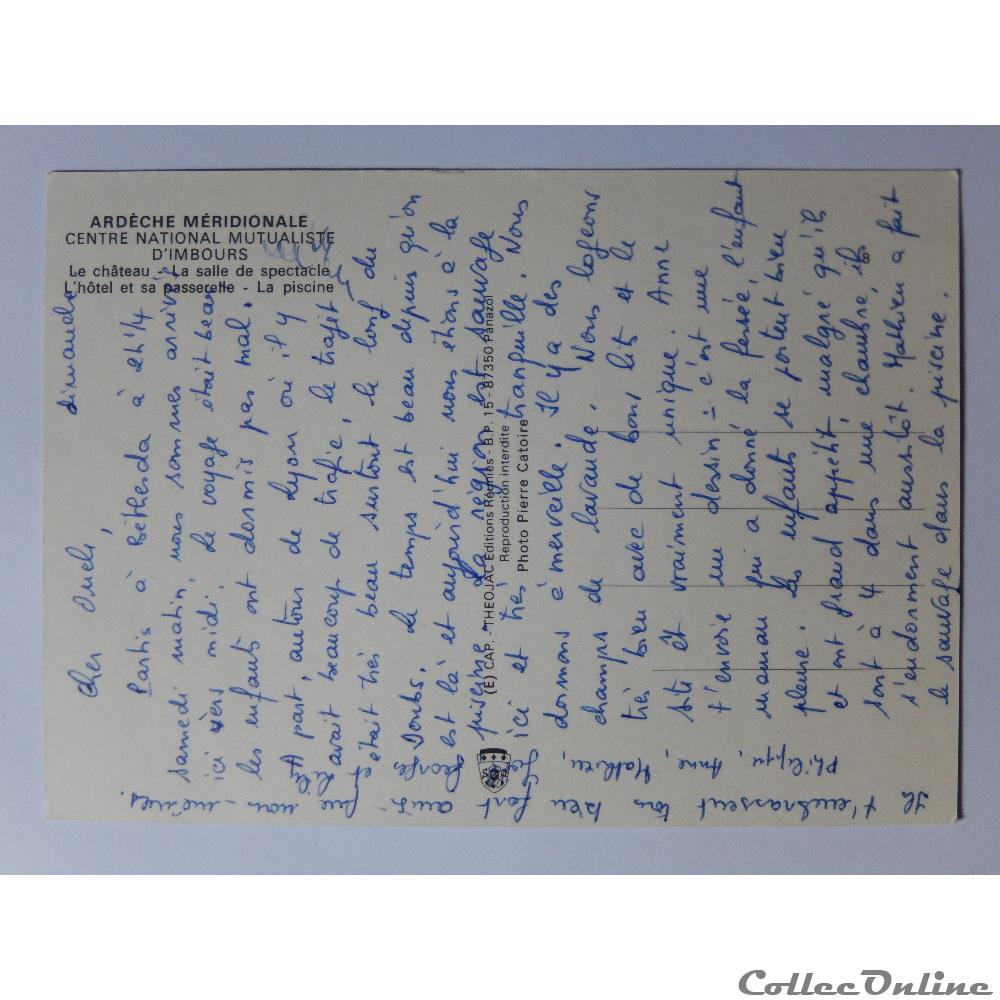 ARDÈCHE MÉRIDIONALE
CENTRE NATIONAL MUTUALISTE
D'IMBOURS
Le château - La salle de spectacle
L'hôtel et sa passerelle - La piscine
(E) CAP. - THEOJAC Editions Réunies - B.P. 15 - 87350 Panazol
Reproduction interdite
Photo Pierre Catoire
dimanche
Cher
Partis à Béthesda à 2h 1/4
samedi matin, nous sommes arrivés
ici vers midi. Le voyage était beau
les enfants ont dormis pas mal.
A part, autour de Lyon où il y
avait beaucoup de trafic, le trajet
était très beau surtout, le long du
Doubs. Le temps est beau depuis qu'on
est là et aujourd'hui nous étions à la
piscine. La région est sauvage
ici et très tranquille. Nous
dormons à merveille. Il y a des
champs de lavande. Nous logeons
très bien avec de bons lits et le
site est vraiment unique. Anne
t'envoie un dessin = c'est une
maman qui a donné la fessé, l'enfant
pleure. Les enfants se portent bien
et ont grand appétit, malgré qu'ils
sont à 4 dans une chambre, ils
s'endorment aussitôt. Mathieu a fait
le sauvage dans la piscine.
Philippe, Anne, Mathieu,
Georges
t'embrassent bien fort
que nous-mêmes.
CollecOnline